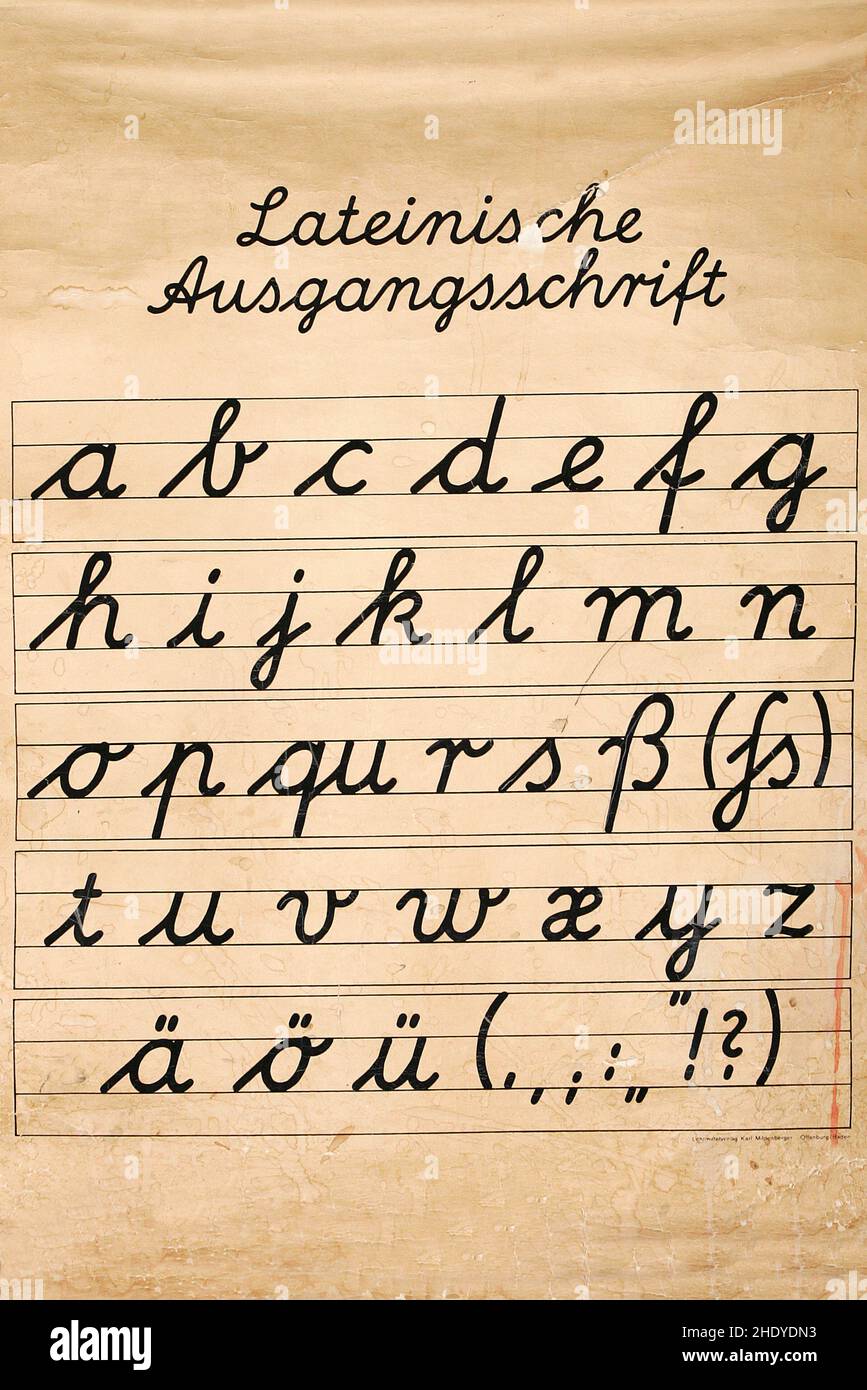 Lateinische
Ausgangsschrift
a b c d e f g
h i j k l m n
o p qu r s ß (ſs)
t u v w x y z
ä ö ü (. , ; : „ “ ! ?)
Lehrmittelverlag Karl Mildenberger Offenburg/Baden
alamy
alamy
Image ID: 2HDYDN3
www.alamy.com